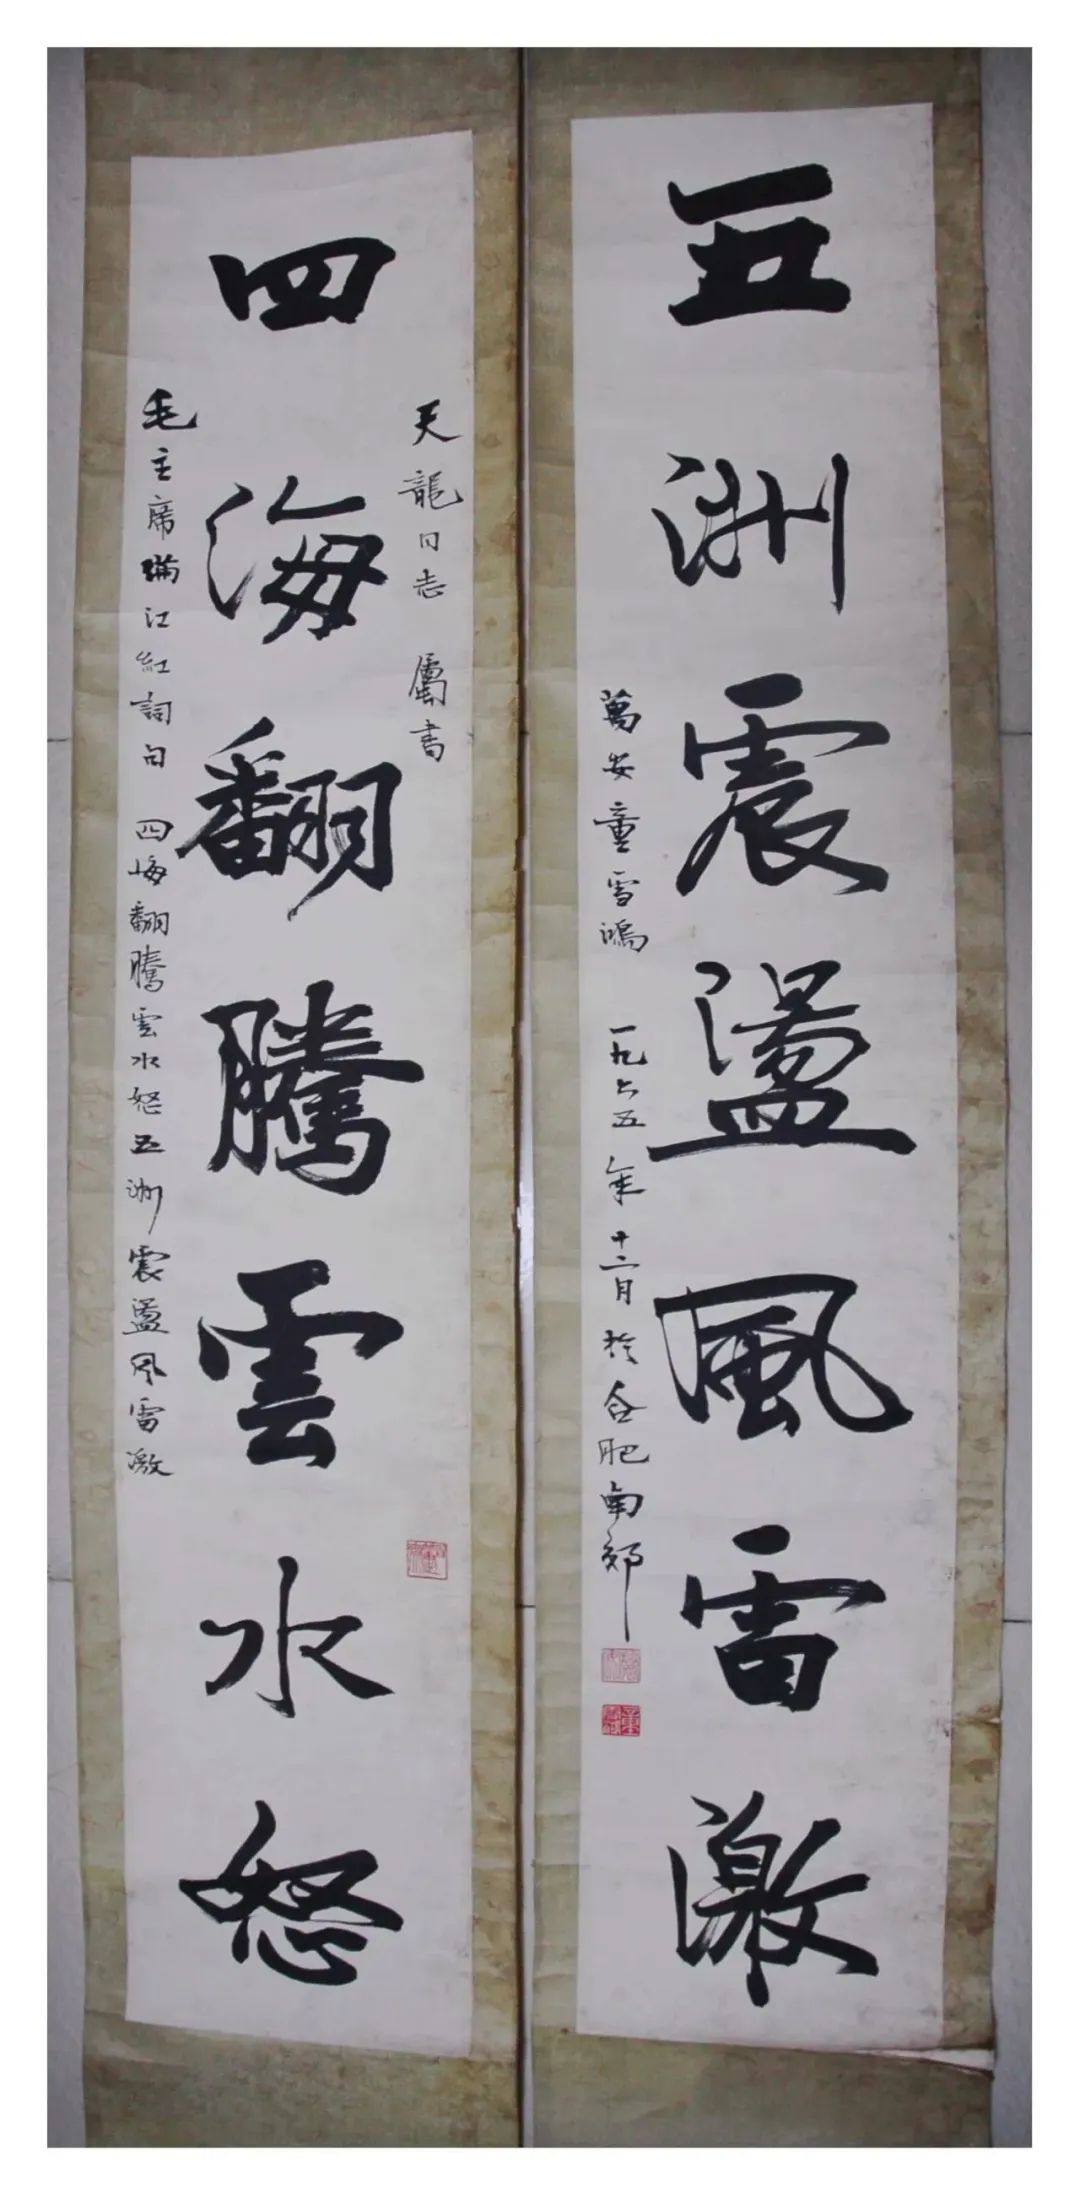 五洲震盪風雷激
萬安童雪鴻 一九六五年十二月於合肥南郊
天龍同志 屬書
四海翻騰雲水怒
毛主席滿江紅詞句 四海翻騰雲水怒五洲震盪风雷激